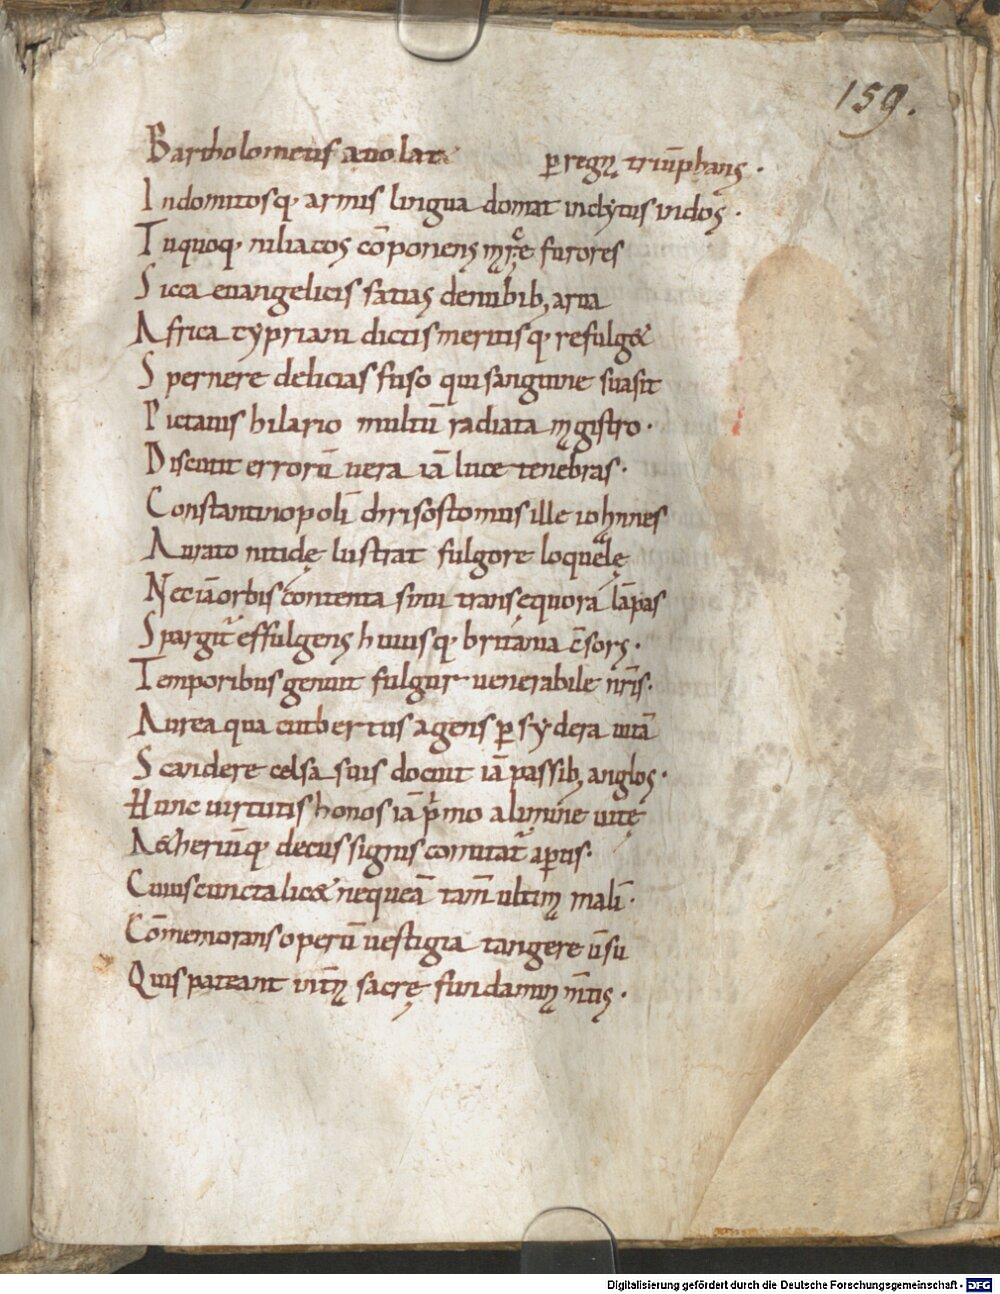 159.
Bartholomeus auolat pregnũ triũphans.
Indomitosq; armis lingua domat inclytus indos.
Tuquoq; niliacos cõponens mrc̃e furores
Sicca euangelicis satias denubib; arua
Africa cypriani dictis meritisq; refulg&
Spernere delicias fuso qui sanguine suasit
Pictauis hilario multũ radiata mgistro.
Discutit errorũ uera iã luce tenebras.
Constantinopolĩ chrisostomus ille iohnnes
Aurato nitidę lustrat fulgore loquelę
Neciã orbis contenta sinu trans equora lãpas
Spargit̃ effulgens huiusq; britãnia c̃sors.
Temporibus genuit fulgur uenerabile nr̃is.
Aurea qua cutbertus agens p sydera uitã
Scandere celsa suis docuit iã passib; anglos.
Hunc uirtutis honos iã pmo alimine uitę
A&heriũq; decus signis comitat̃ aptis.
Cuius cuncta lic& nequeã tam̃ ultim malĩ.
Cõmemorans operũ uestigia tangere u̅su
Quis pateant int̃n sacrę fundamin m̃tis.
Digitalisierung gefördert durch die Deutsche Forschungsgemeinschaft - DFG